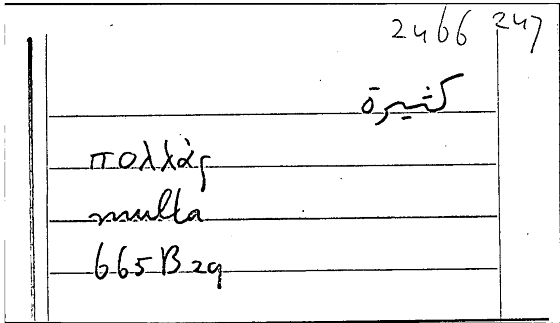 2466 247
كثيرة
πολλὰς
multa
665B29